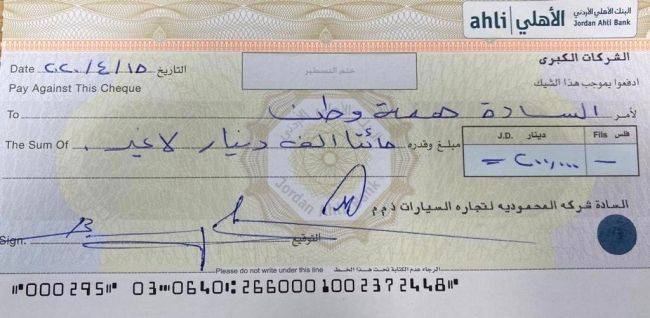 ahli الأهلي البنك الأهلي الأردني
Jordan Ahli Bank
الشركات الكبرى
Date ٢٠٢٠/٤/١٥ التاريخ
ختم التسطير
Pay Against This Cheque ادفعوا بموجب هذا الشيك
To السادة همة وطن لأمر
The Sum Of مائتا الف دينار لا غير . مبلغ وقدره
J.D. دينار Fils فلس
= ٢٠٠,٠٠٠ —
Jordan Ahli Bank
السادة شركه المحموديه لتجاره السيارات ذ م م
Sign. التوقيع
Please do not write under this line الرجاء عدم الكتابة تحت هذا الخط
⑈000295⑈ 03⑉0640⑆2660001002372448⑈